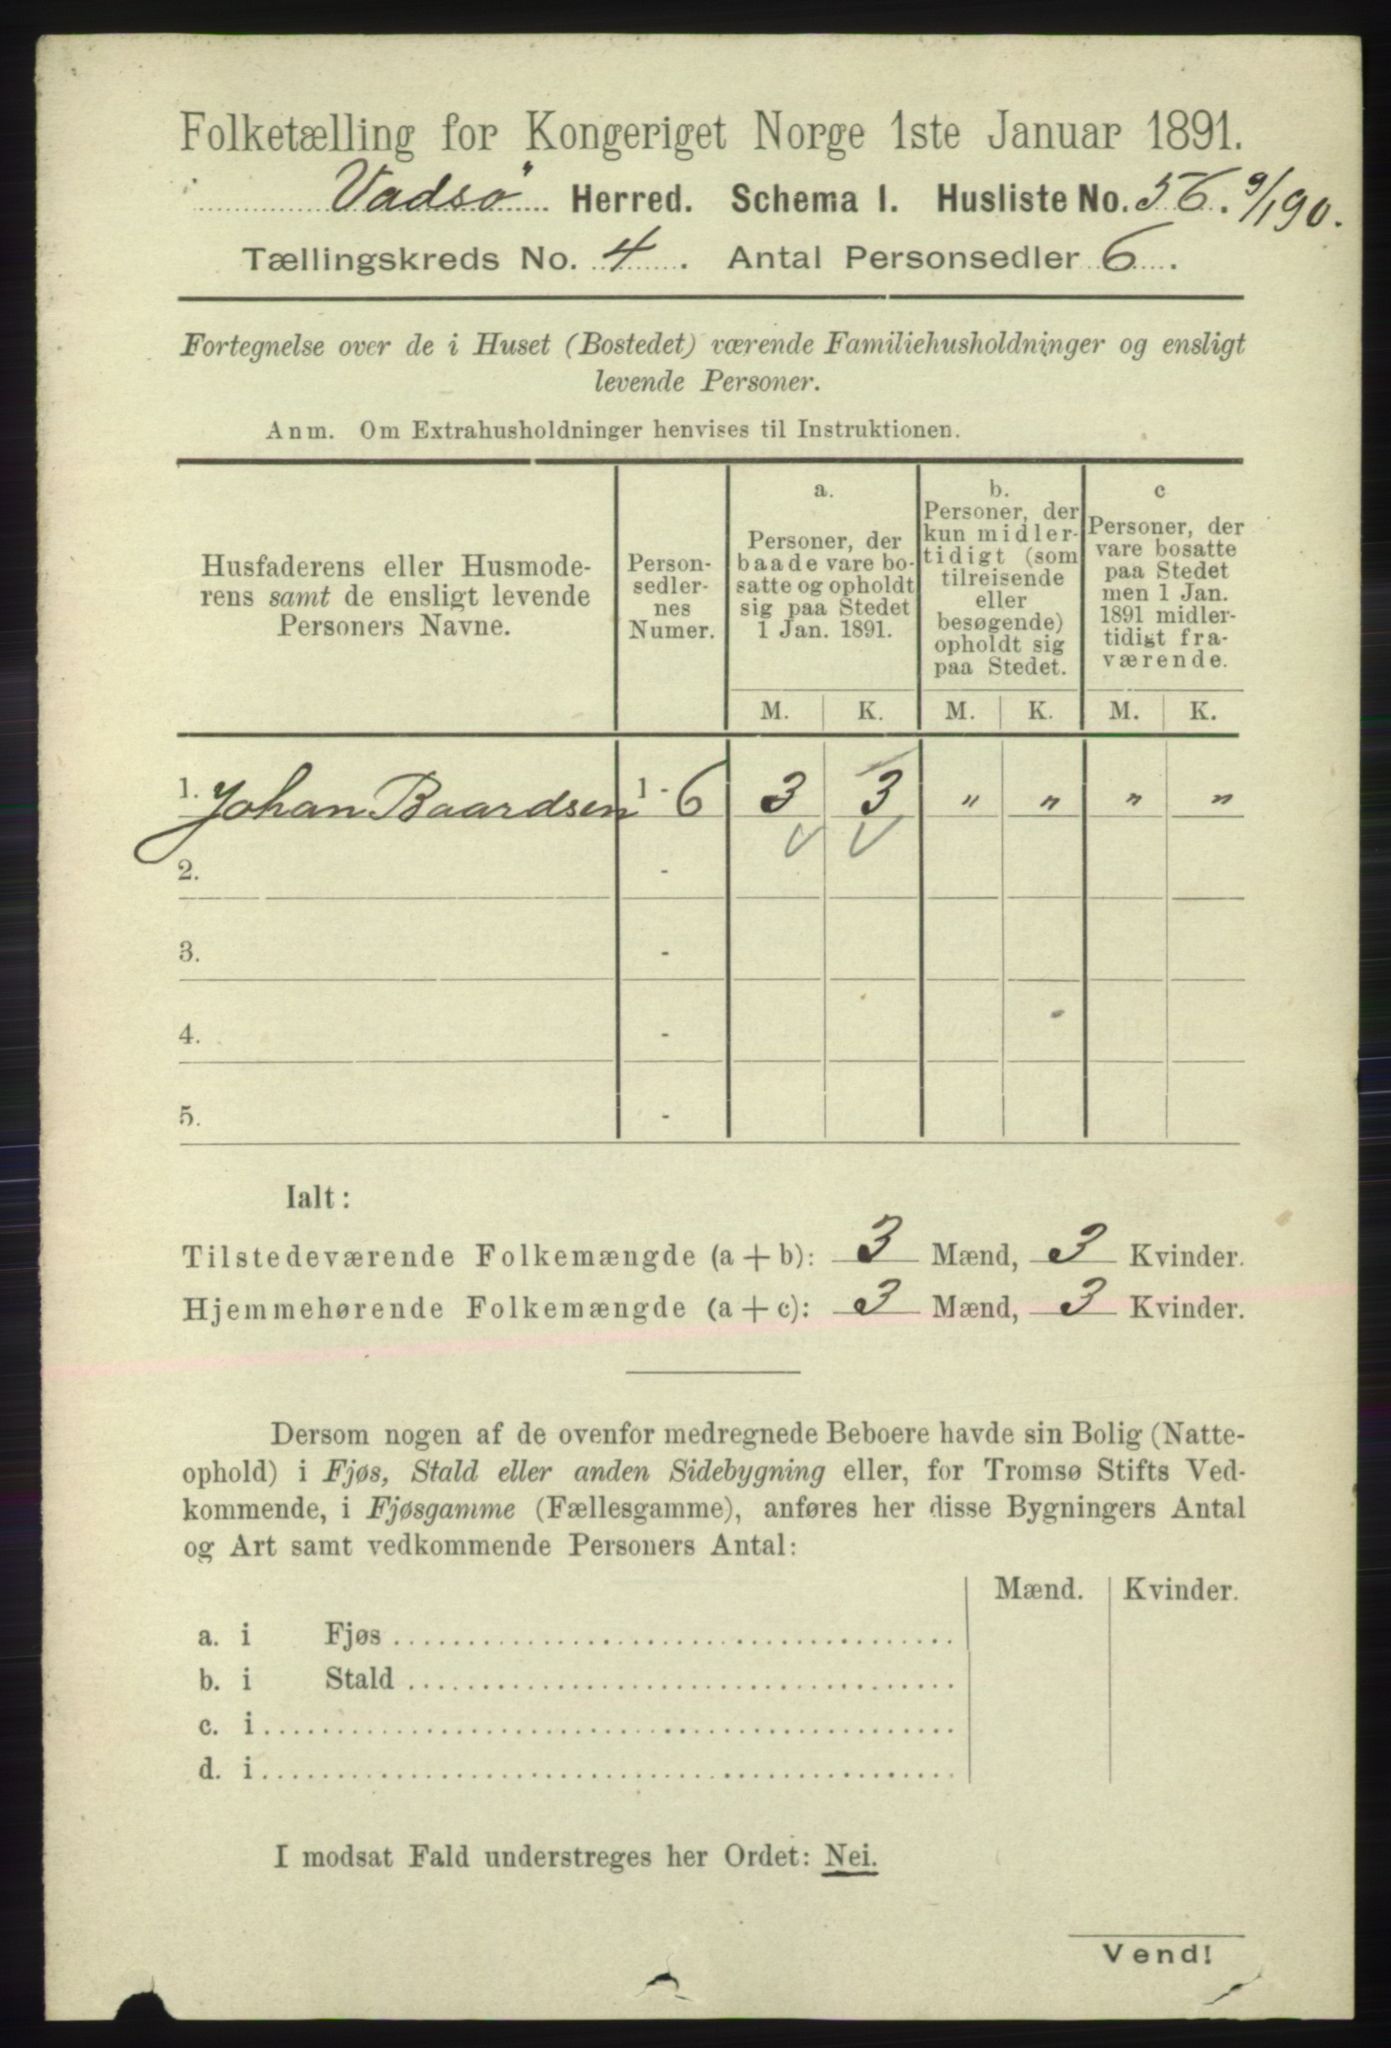 Folketælling for Kongeriget Norge 1ste Januar 1891.
i Vadsö Herred. Schema I. Husliste No. 56. 9/190.
Tællingskreds No. 4. Antal Personsedler 6.
Fortegnelse over de i Huset (Bostedet) værende Familiehusholdninger og ensligt
levende Personer.
Anm. Om Extrahusholdninger henvises til Instruktionen.
Husfaderens eller Husmode-
rens samt de ensligt levende
Personers Navne.
Person-
sedler-
nes
Numer.
a.
Personer, der
baade vare bo-
satte og opholdt
sig paa Stedet
1 Jan. 1891.
b.
Personer, der
kun midler-
tidigt (som
tilreisende
eller
besøgende)
opholdt sig
paa Stedet.
c
Personer, der
vare bosatte
paa Stedet
men 1 Jan.
1891 midler-
tidigt fra-
værende.
M. K. M. K. M. K.
1. Johan Baardsen 1 - 6 3 3 " " " "
2. -
3. -
4. -
5. -
Ialt:
Tilstedeværende Folkemængde (a + b): 3 Mænd, 3 Kvinder.
Hjemmehørende Folkemængde (a + c): 3 Mænd, 3 Kvinder.
Dersom nogen af de ovenfor medregnede Beboere havde sin Bolig (Natte-
ophold) i Fjøs, Stald eller anden Sidebygning eller, for Tromsø Stifts Ved-
kommende, i Fjøsgamme (Fællesgamme), anføres her disse Bygningers Antal
og Art samt vedkommende Personers Antal:
Mænd. Kvinder.
a. i Fjøs
b. i Stald
c. i
d. i
I modsat Fald understreges her Ordet: Nei.
Vend!